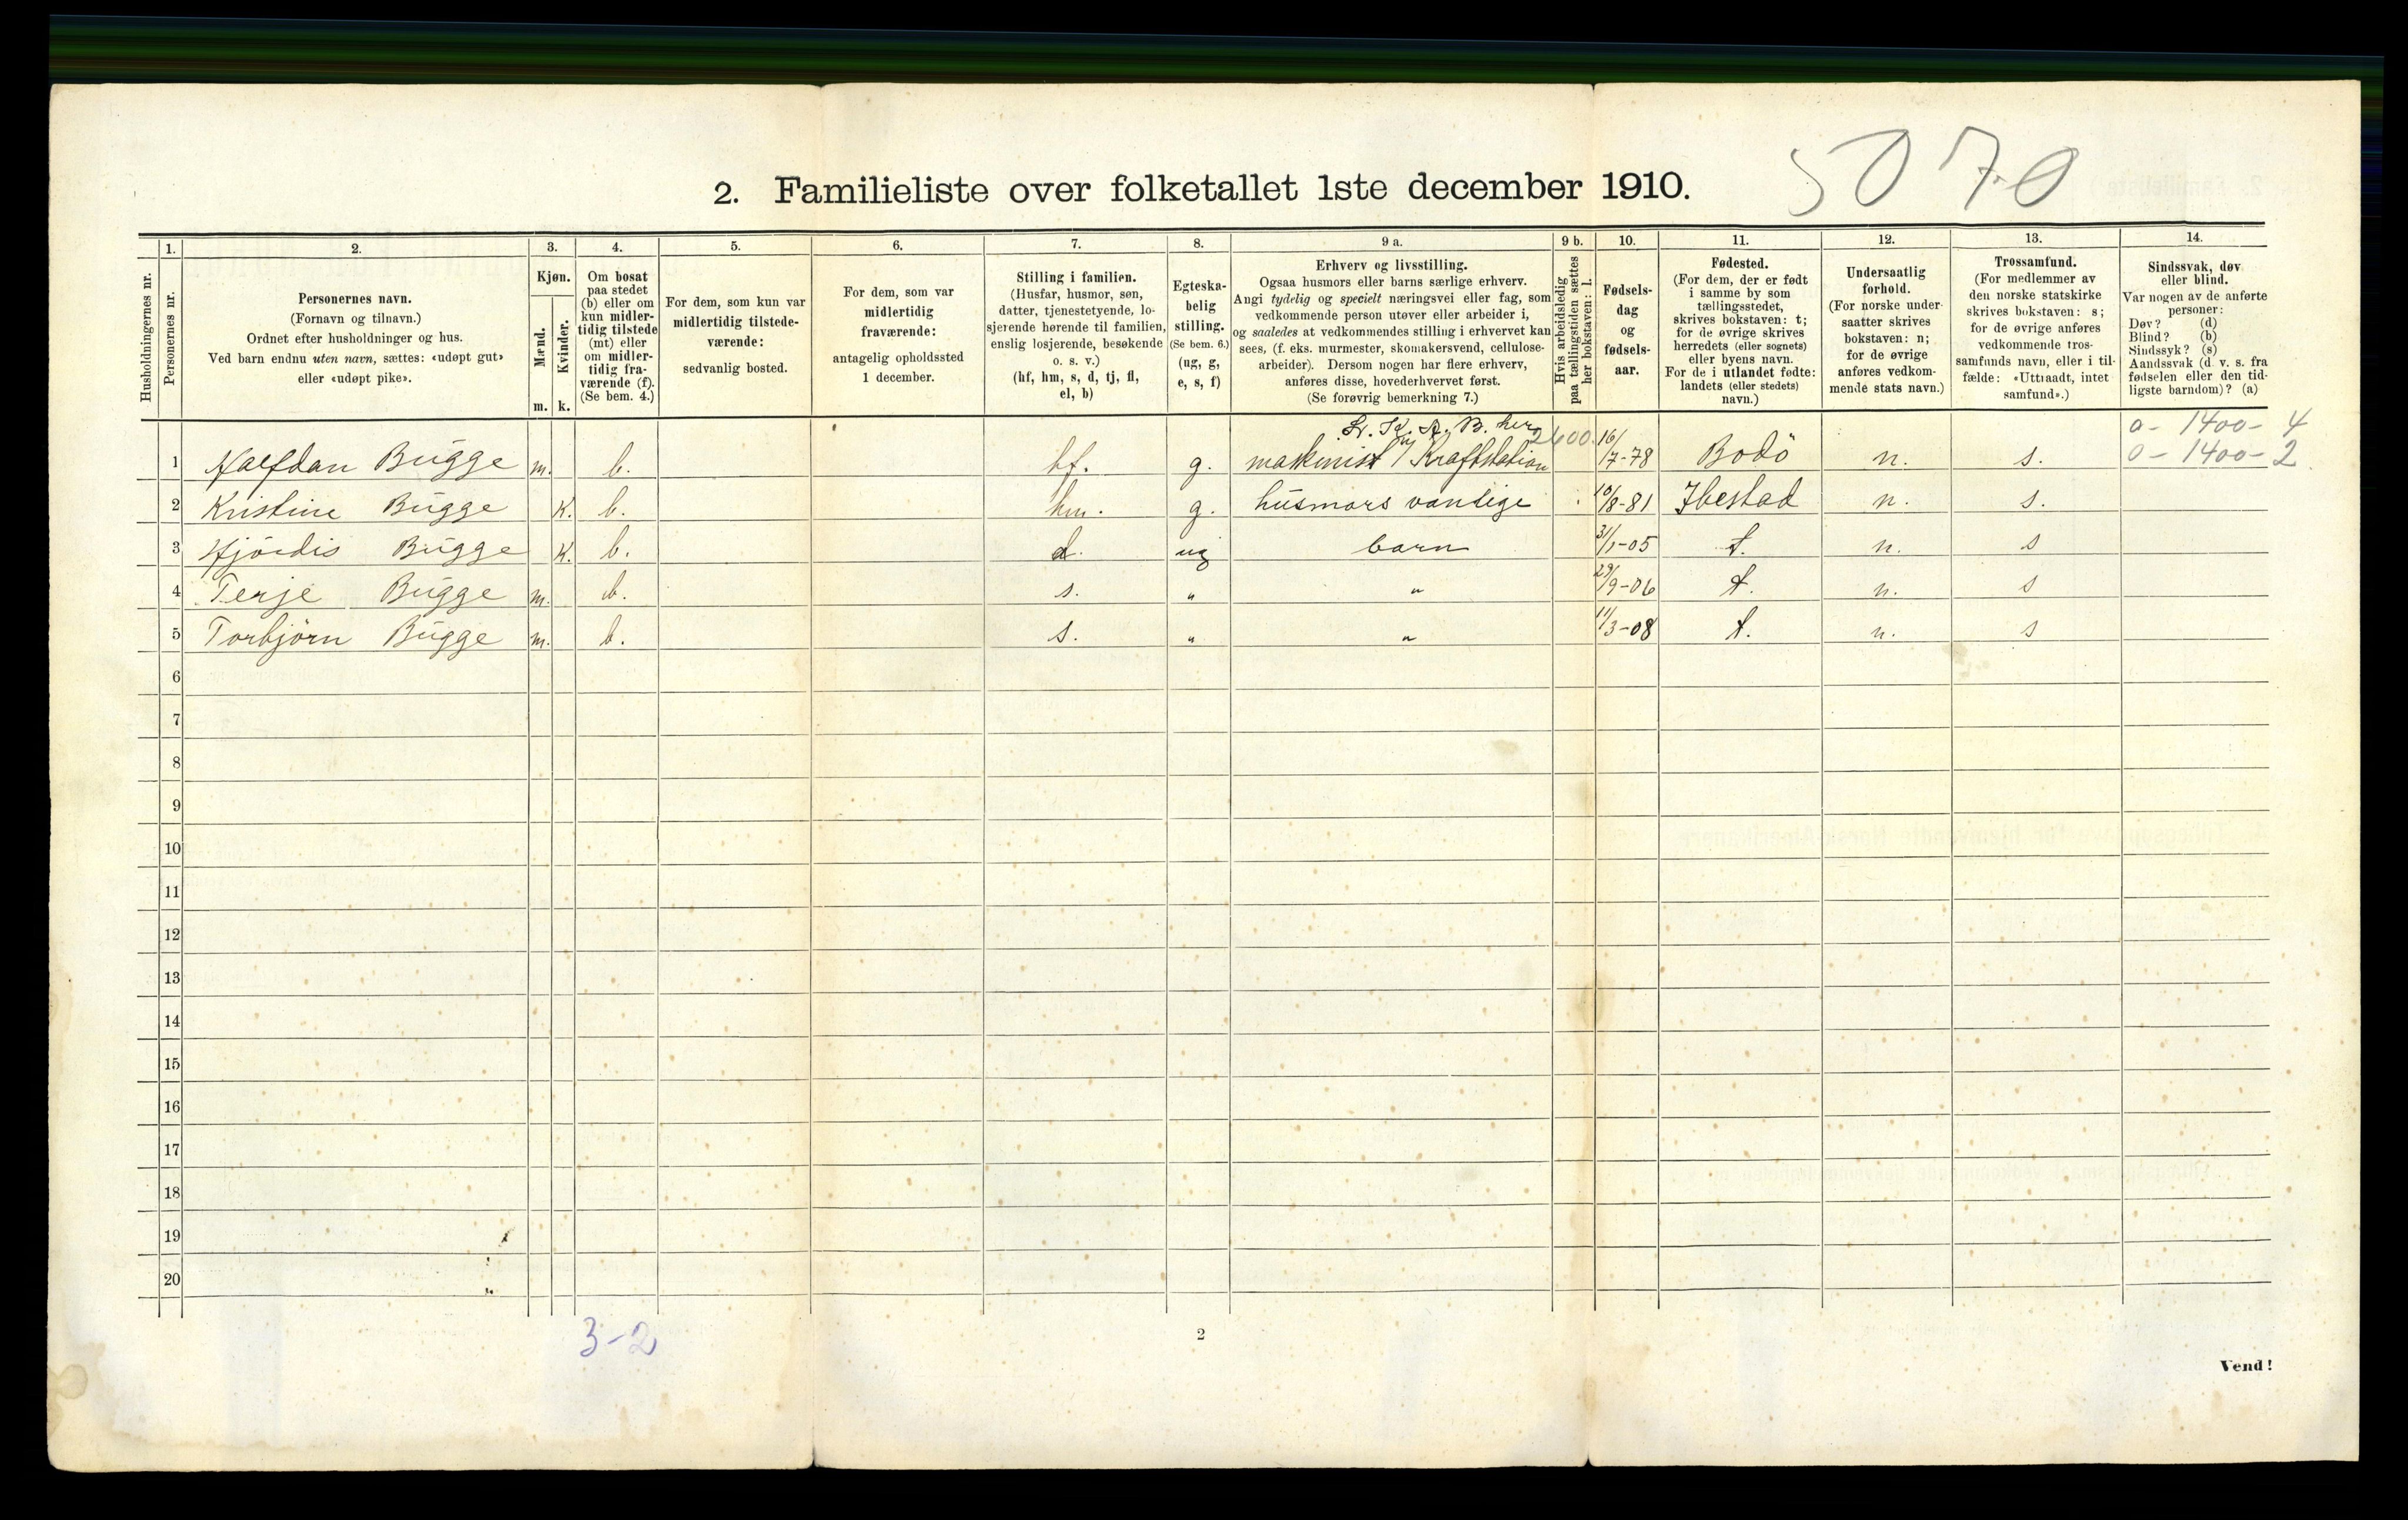 5070
2. Familieliste over folketallet 1ste december 1910.
Husholdningernes nr.
1. Personernes nr.
2. Personernes navn.
(Fornavn og tilnavn.)
Ordnet efter husholdninger og hus.
Ved barn endnu uten navn, sættes: «udøpt gut»
eller «udøpt pike».
3. Kjøn.
Mænd. m.
Kvinder. k.
4. Om bosat
paa stedet
(b) eller om
kun midler-
tidig tilstede
(mt) eller
om midler-
tidig fra-
værende (f).
(Se bem. 4.)
5. For dem, som kun var
midlertidig tilstede-
værende:
sedvanlig bosted.
6. For dem, som var
midlertidig
fraværende:
antagelig opholdssted
1 december.
7. Stilling i familien.
(Husfar, husmor, søn,
datter, tjenestetyende, lo-
sjerende hørende til familien,
enslig losjerende, besøkende
o. s. v.)
(hf, hm, s, d, tj, fl,
el, b)
8. Egteska-
belig
stilling.
(Se bem. 6.)
(ug, g,
e, s, f)
9 a. Erhverv og livsstilling.
Ogsaa husmors eller barns særlige erhverv.
Angi tydelig og specielt næringsvei eller fag, som
vedkommende person utøver eller arbeider i,
og saaledes at vedkommendes stilling i erhvervet kan
sees, (f. eks. murmester, skomakersvend, cellulose-
arbeider). Dersom nogen har flere erhverv,
anføres disse, hovederhvervet først.
(Se forøvrig bemerkning 7.)
9 b. Hvis arbeidsledig
paa tællingstiden sættes
her bokstaven: l.
10. Fødsels-
dag
og
fødsels-
aar.
11. Fødested.
(For dem, der er født
i samme by som
tællingsstedet,
skrives bokstaven: t;
for de øvrige skrives
herredets (eller sognets)
eller byens navn.
For de i utlandet fødte:
landets (eller stedets)
navn.)
12. Undersaatlig
forhold.
(For norske under-
saatter skrives
bokstaven: n;
for de øvrige
anføres vedkom-
mende stats navn.)
13. Trossamfund.
(For medlemmer av
den norske statskirke
skrives bokstaven: s;
for de øvrige anføres
vedkommende tros-
samfunds navn, eller i til-
fælde: «Uttraadt, intet
samfund».)
14. Sindssvak, døv
eller blind.
Var nogen av de anførte
personer:
Døv? (d)
Blind? (b)
Sindssyk? (s)
Aandssvak (d. v. s. fra
fødselen eller den tid-
ligste barndom)? (a)
L. K. A. B. her 2600. 0 - 1400 - 4
1 Halfdan Bugge m. b. hf. g. maskinist v/ Kraftstation 16/7-78 Bodö n. s. 0 - 1400 - 2
2 Kristine Bugge K. b. hm. g. husmors vanlige 10/8-81 Ibestad n. s.
3 Hjördis Bugge K. b. d. ug barn 31/1-05 t. n. s
4 Terje Bugge m. b. s. " " 29/9-06 t. n. s
5 Torbjörn Bugge m. b. s. " " 11/3-08 t. n. s
6
7
8
9
10
11
12
13
14
15
16
17
18
19
20
3-2
2
Vend!